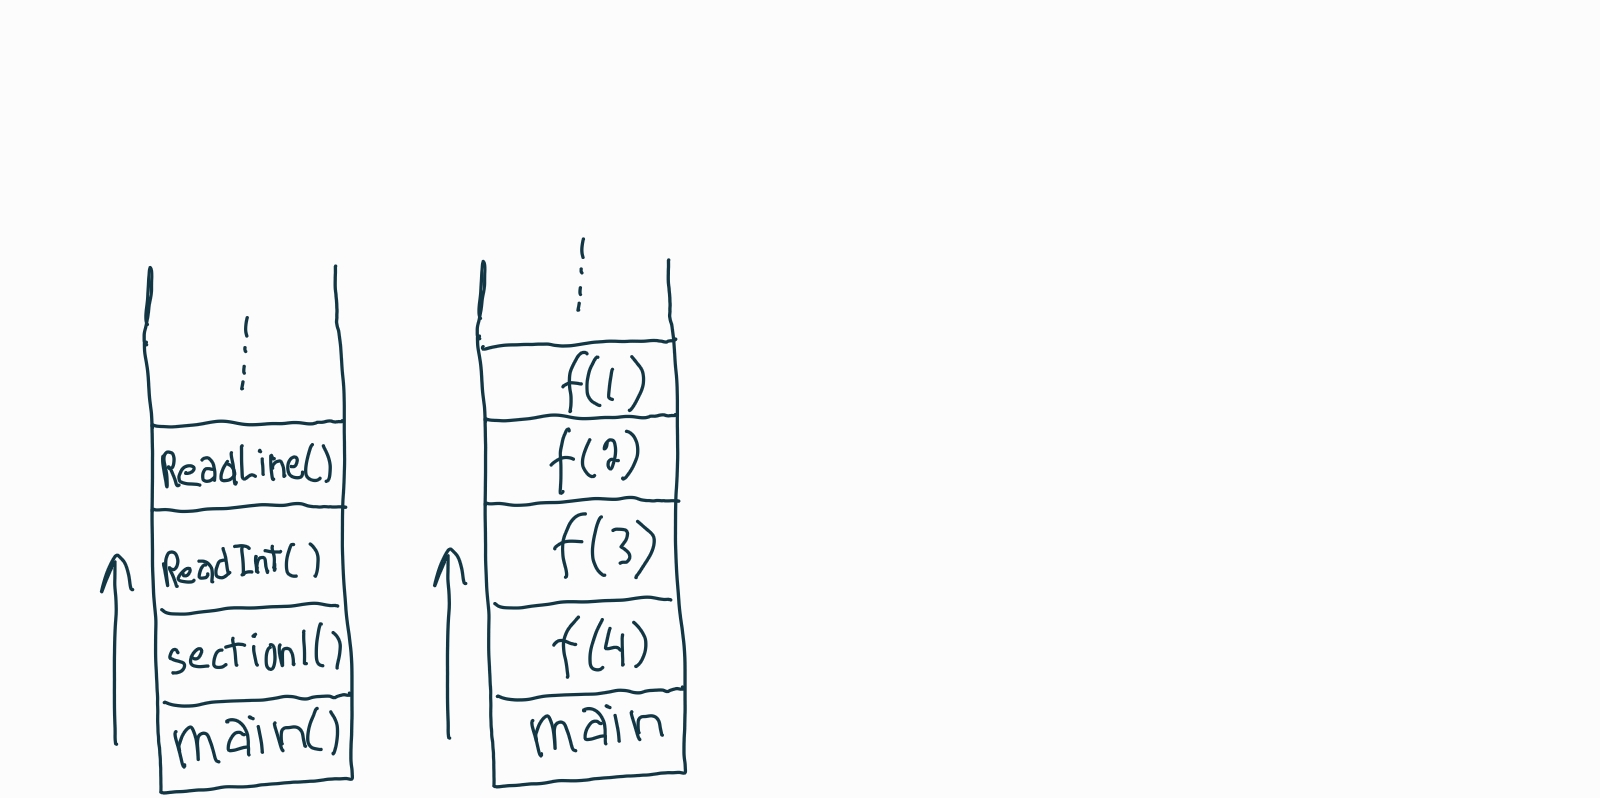 ReadLine()
ReadInt()
section1()
main()
f(1)
f(2)
f(3)
f(4)
main